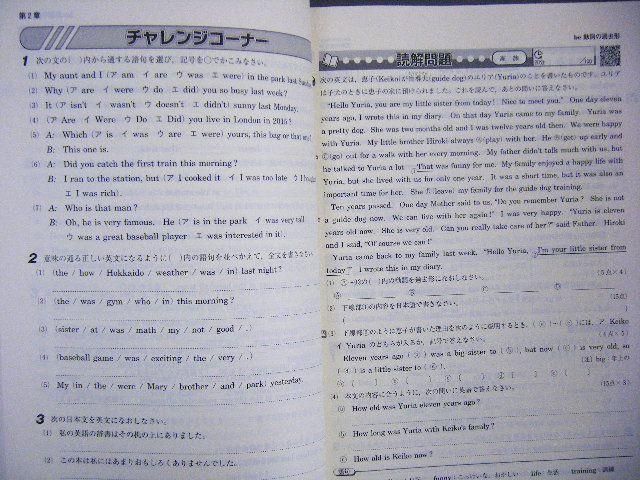 第2章
チャレンジコーナー
1 次の文の( )内から適する語句を選び,記号を○でかこみなさい。
(1) My aunt and I (ア am イ are ウ was エ were) in the park last Sunday.
(2) Why (ア are イ were ウ do エ did) you so busy last week?
(3) It (ア isn't イ wasn't ウ doesn't エ didn't) sunny last Monday.
(4) (ア Are イ Were ウ Do エ Did) you live in London in 2015?
(5) A: Which (ア is イ was ウ are エ were) yours, this bag or that
B: This one is.
(6) A: Did you catch the first train this morning?
B: I ran to the station, but (ア I cooked it イ I was too late ウ I
エ I was rich).
(7) A: Who is that man?
B: Oh, he is very famous. He (ア is in the park イ was very tall
ウ was a great baseball player エ was interested in it).
2 意味の通る正しい英文になるように( )内の語句を並べかえて,全文を書きなさい。
(1) (the / how / Hokkaido / weather / was / in) last night?
(2) (the / was / gym / who / in) this morning?
(3) (sister / at / was / math / my / not / good / .)
(4) (baseball game / was / exciting / the / very / .)
(5) My (in / the / were / Mary / brother / and / park) yesterday.
3 次の日本文を英文になおしなさい。
(1) 私の英語の辞書はその机の上にありました。
(2) この本は私にはあまりおもしろくありませんでした。
be 動詞の過去形
読解問題
/100
次の英文は,恵子(Keiko)が盲導犬(guide dog)のユリア(Yuria)のことを書いたものです。ユリ
アは子犬のときに恵子の家に預けられました。これを読んで,あとの問いに答えなさい。
"Hello Yuria, you are my little sister from today! Nice to meet you." One day eleven
years ago, I wrote this in my diary. On that day Yuria came to my family. Yuria was
a pretty dog. She was two months old and I was twelve years old then. We were happy
with Yuria. My little brother Hiroki always (play) with her. He (get) up early and
(go) out for a walk with her every morning. My father didn't talk much with us, but
he talked to Yuria a lot. That was funny for me. My family enjoyed a happy life with
Yuria, but she lived with us for only one year. It was a short time, but it was also an
important time for her. She (leave) my family for the guide dog training.
Ten years passed. One day Mother said to us, "Do you remember Yuria? She is not
a guide dog now. We can live with her again!" I was very happy. "Yuria is eleven
years old now. She is very old. Can you really take care of her?" said Father. Hiroki
and I said, "Of course we can!"
Yuria came back to my family last week. "Hello Yuria, I'm your little sister from
today." I wrote this in my diary.
(1) ( )内の動詞を過去形になおしなさい。 (5点×4)
(2) 下線部の内容を日本語で書きなさい。 (15点)
(3) 下線部のように恵子が書いた理由を次のように説明するとき, ( )~( )には,ア Keiko
イ Yuria のどちらが入るか,記号で答えなさい。 (4点×5)
Eleven years ago ( ) was a big sister to ( ), but now ( ) is very old, so
( ) is a little sister to ( ).
(4) 本文の内容に合うように,次の問いに英語で答えなさい。 (15点×3)
How old was Yuria eleven years ago?
How long was Yuria with Keiko's family?
How old is Keiko now?
語句
funny: こっけいな,おかしい life: 生活 training: 訓練